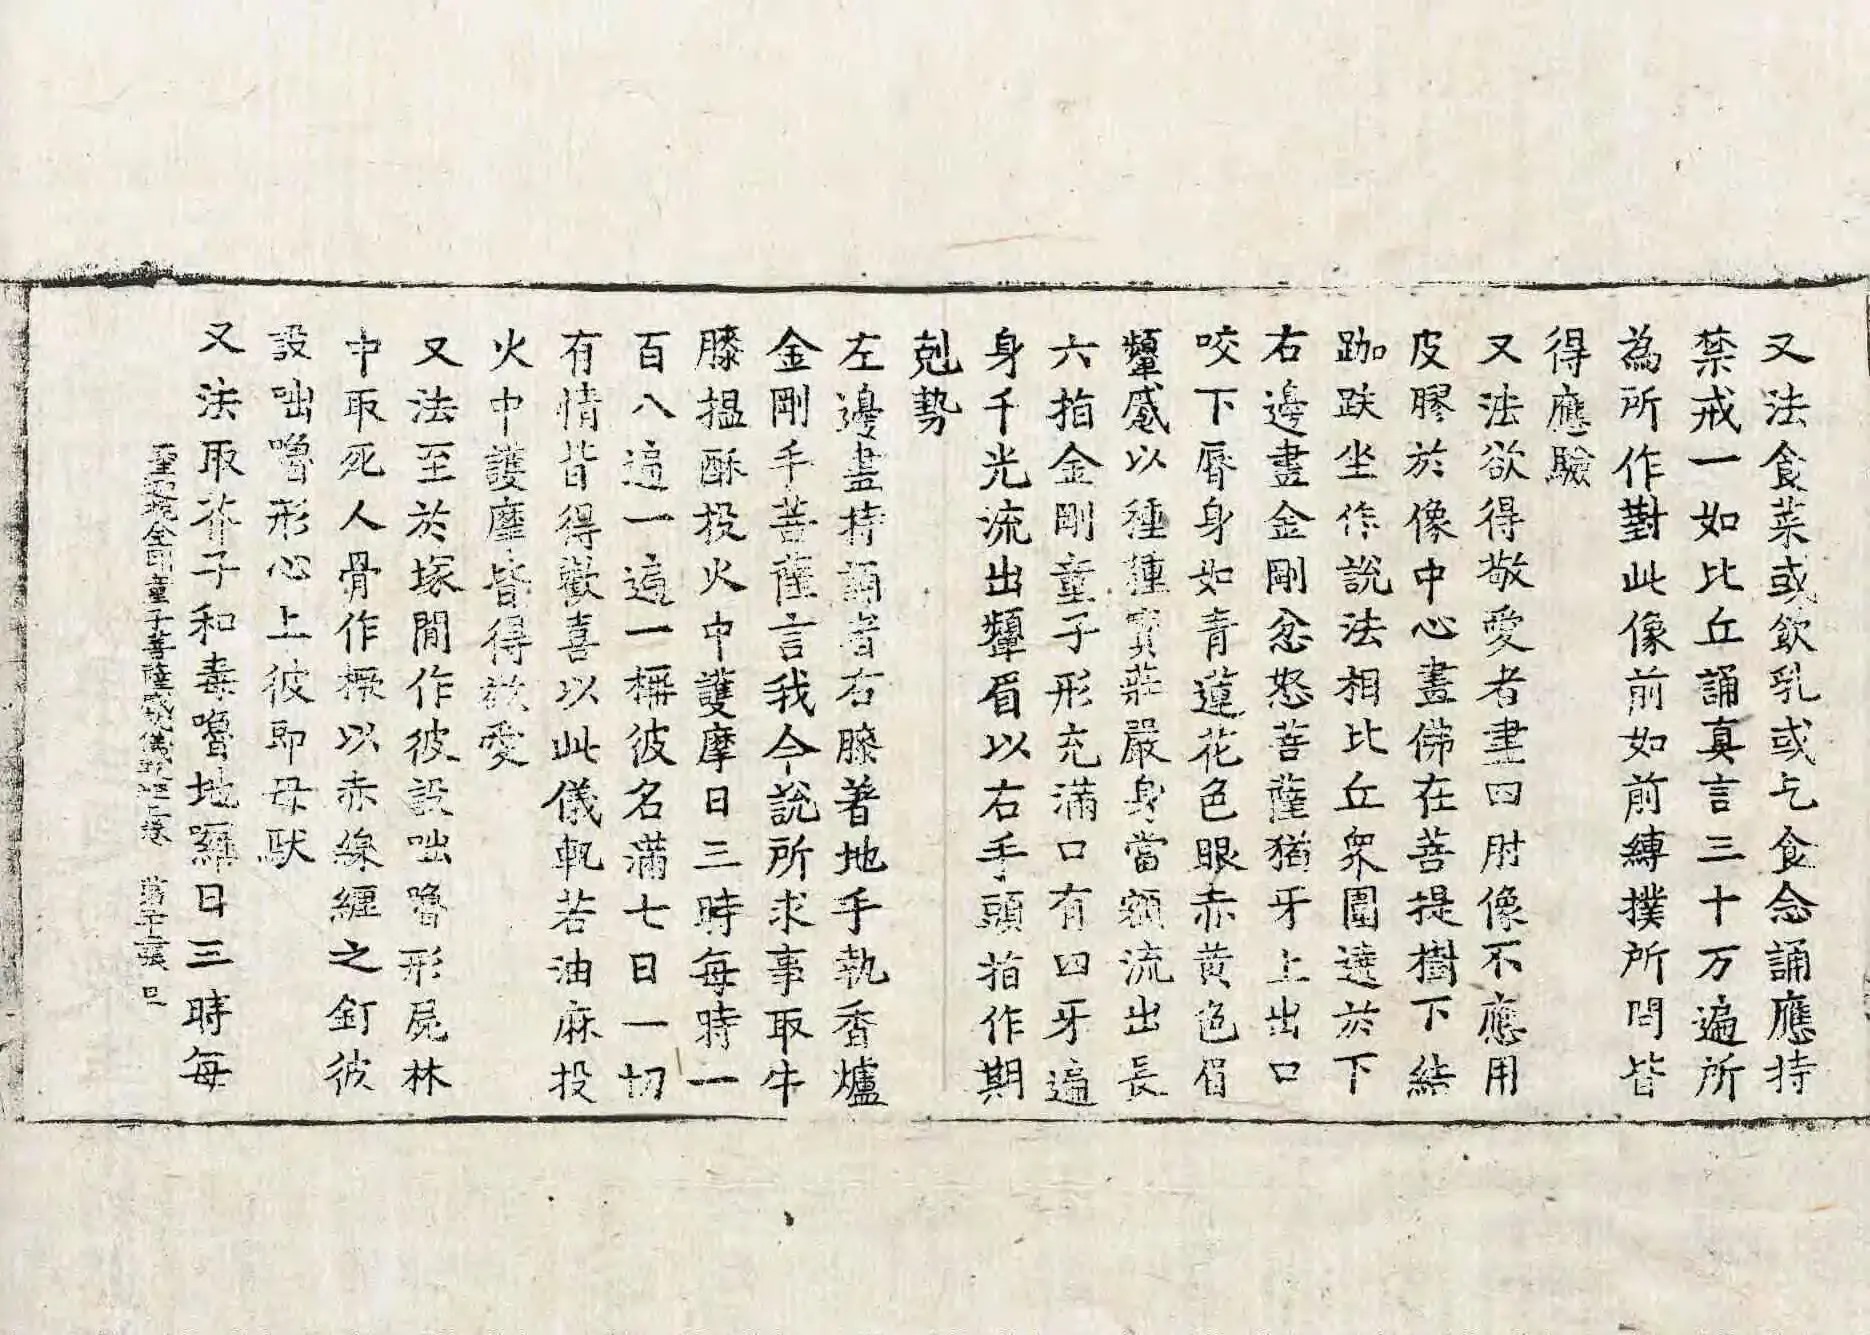 又法食菜或飲乳或乞食念誦應持
禁戒一如比丘誦真言三十万遍所
為所作對此像前如前縛撲所問皆
得應驗
又法欲得敬愛者畫四肘像不應用
皮膠於像中心畫佛在菩提樹下結
跏趺坐作說法相比丘眾圍遶於下
右邊畫金剛忿怒菩薩猶牙上出口
咬下脣身如青蓮花色眼赤黃色眉
顰慼以種種寶莊嚴身當額流出長
六指金剛童子形充滿口有四牙遍
身千光流出顰眉以右手頭指作期
剋勢
左邊畫持誦者右膝著地手執香爐
金剛手菩薩言我今說所求事取牛
膝搵酥投火中護摩日三時每時一
百八遍一遍一稱彼名滿七日一切
有情皆得歡喜以此儀軌若油麻投
火中護摩皆得敬愛
又法至於塚間作彼設咄嚕形屍林
中取死人骨作橛以赤線纏之釘彼
設咄嚕形心上彼即母馱
聖迦抳金剛童子菩薩成就儀軌經上卷 第十張 旦
又法取芥子和毒嚕地囉日三時每